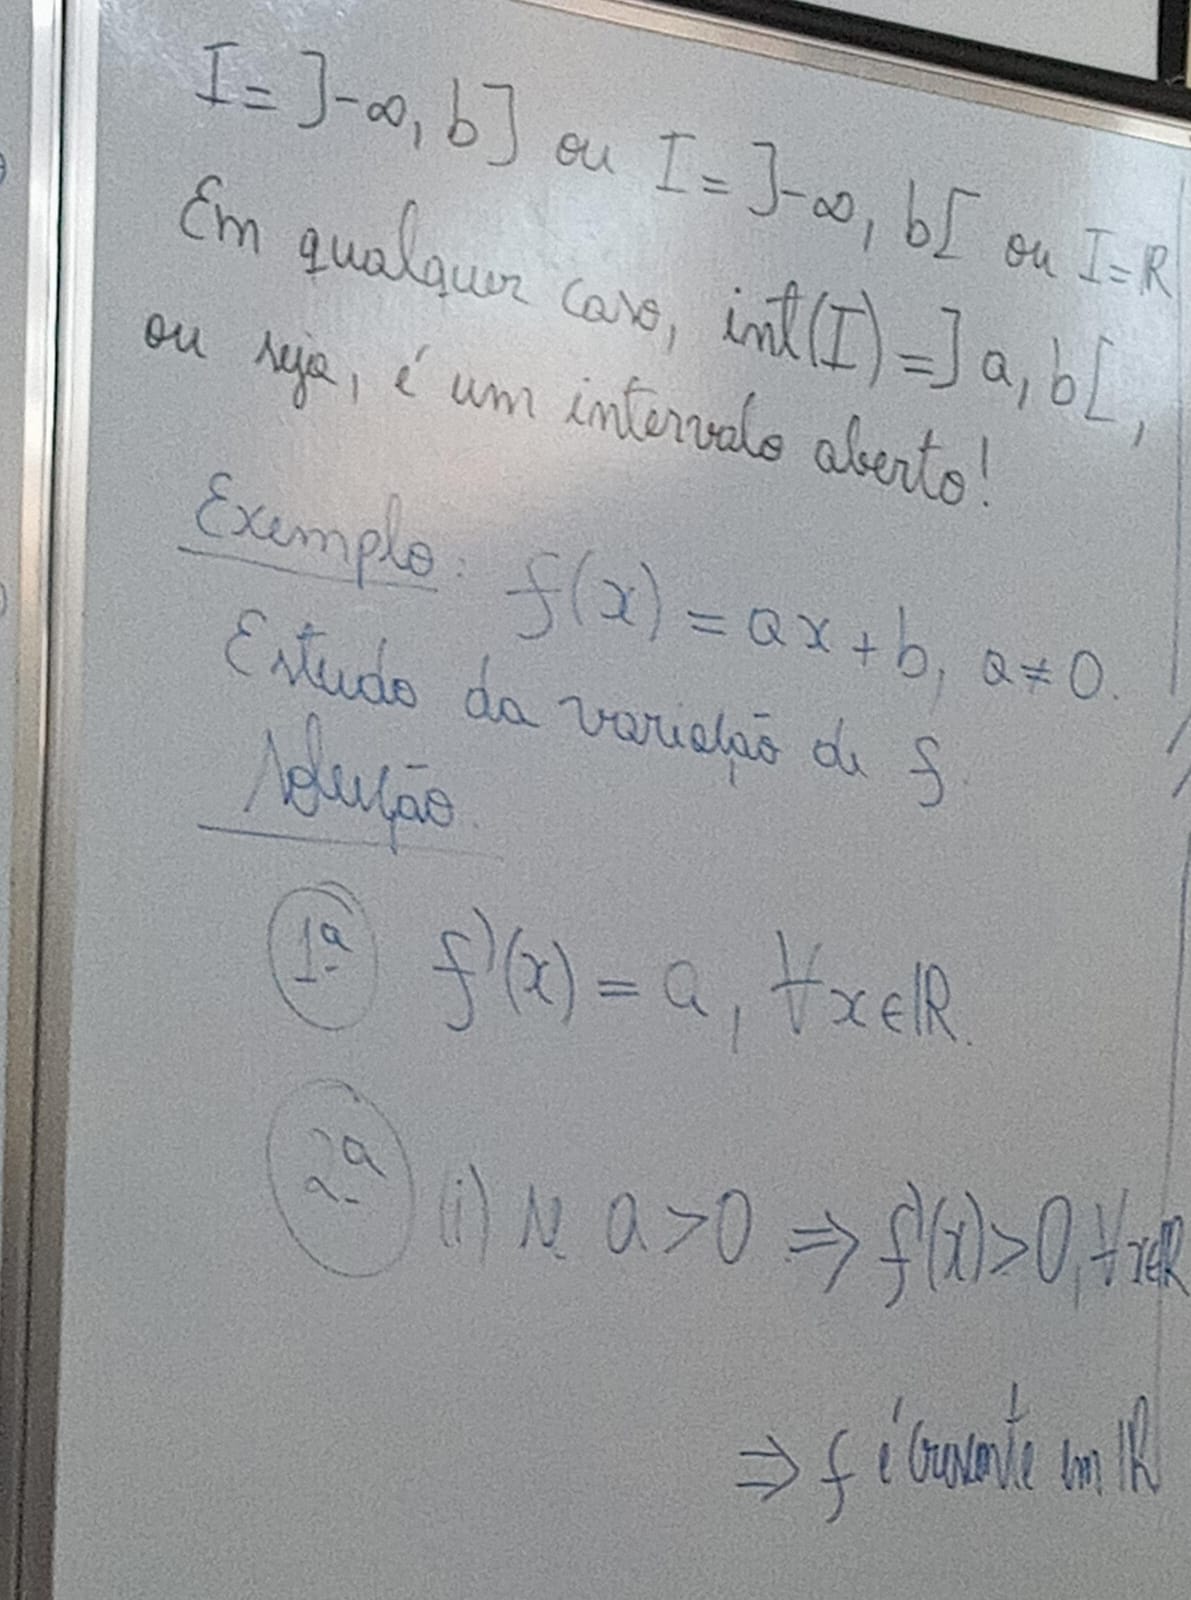 I = ]-∞, b] ou I = ]-∞, b[ ou I = ℝ
Em qualquer caso, int(I) = ]a, b[,
ou seja, é um intervalo aberto!
Exemplo: f(x) = ax + b, a ≠ 0.
Estudo da variação de f.
Solução.
1ª f'(x) = a, ∀x∈ℝ.
2ª (i) se a > 0 ⇒ f'(x) > 0, ∀x∈ℝ
⇒ f é crescente em ℝ